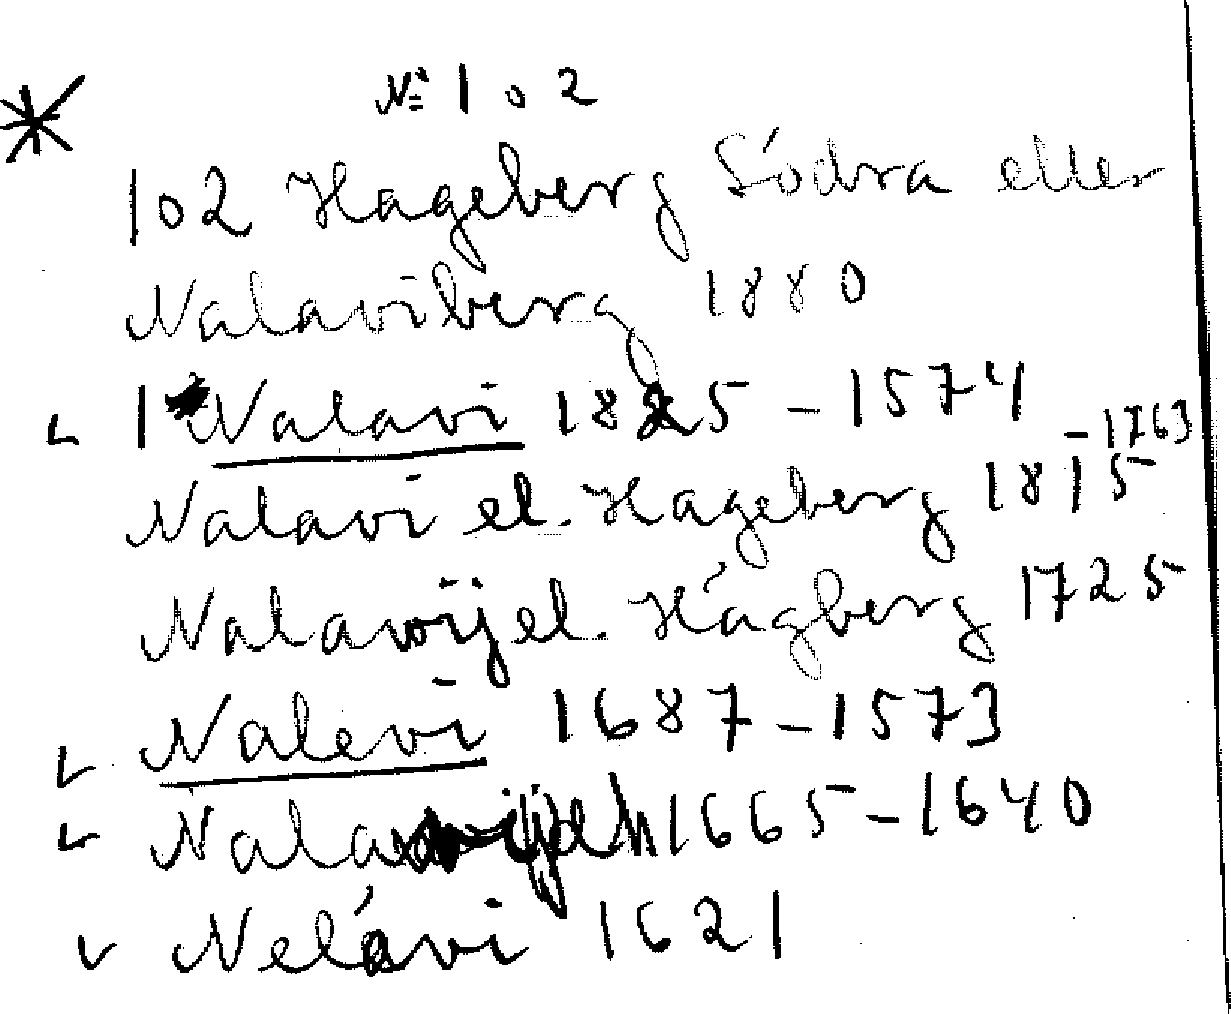 № 102
102 Hageberg Södra eller
Nalaviberg 1880
1 Nalavi 1825 - 1574
- 1763
Nalavi el. Hageberg 1815
Nalawij el. Hágberg 1725
Nalevi 1687 - 1573
1665 - 1640
Nelávi 1621